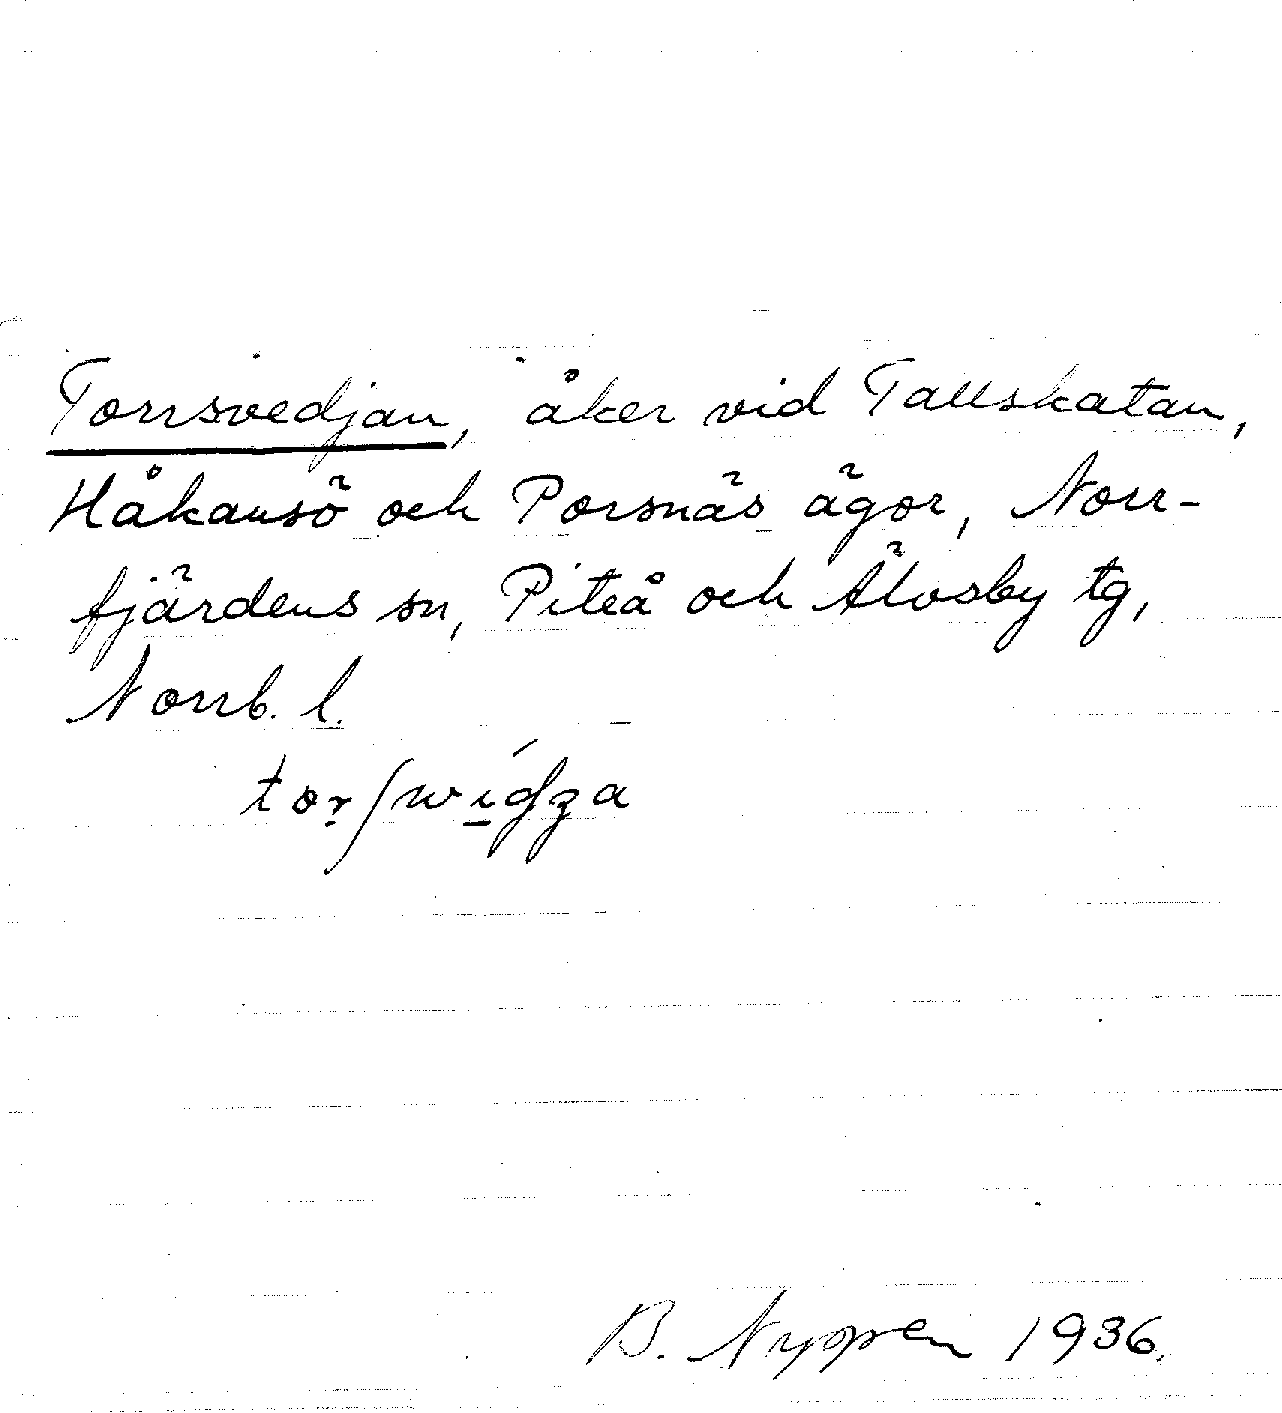 Torrsvedjan, åker vid Tallskatan,
Håkansö och Porsnäs ägor, Norr-
fjärdens sn, Piteå och Älvsby tg,
Norrb. l.
B. Nyppen 1936.